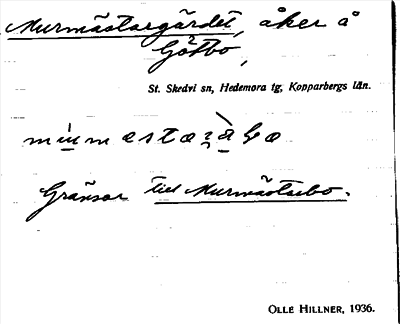 Murmästargärdet, åker å
Götbo,
St. Skedvi sn, Hedemora tg, Kopparbergs län.
Gränsar till Murmästarbo.
OLLE HILLNER, 1936.